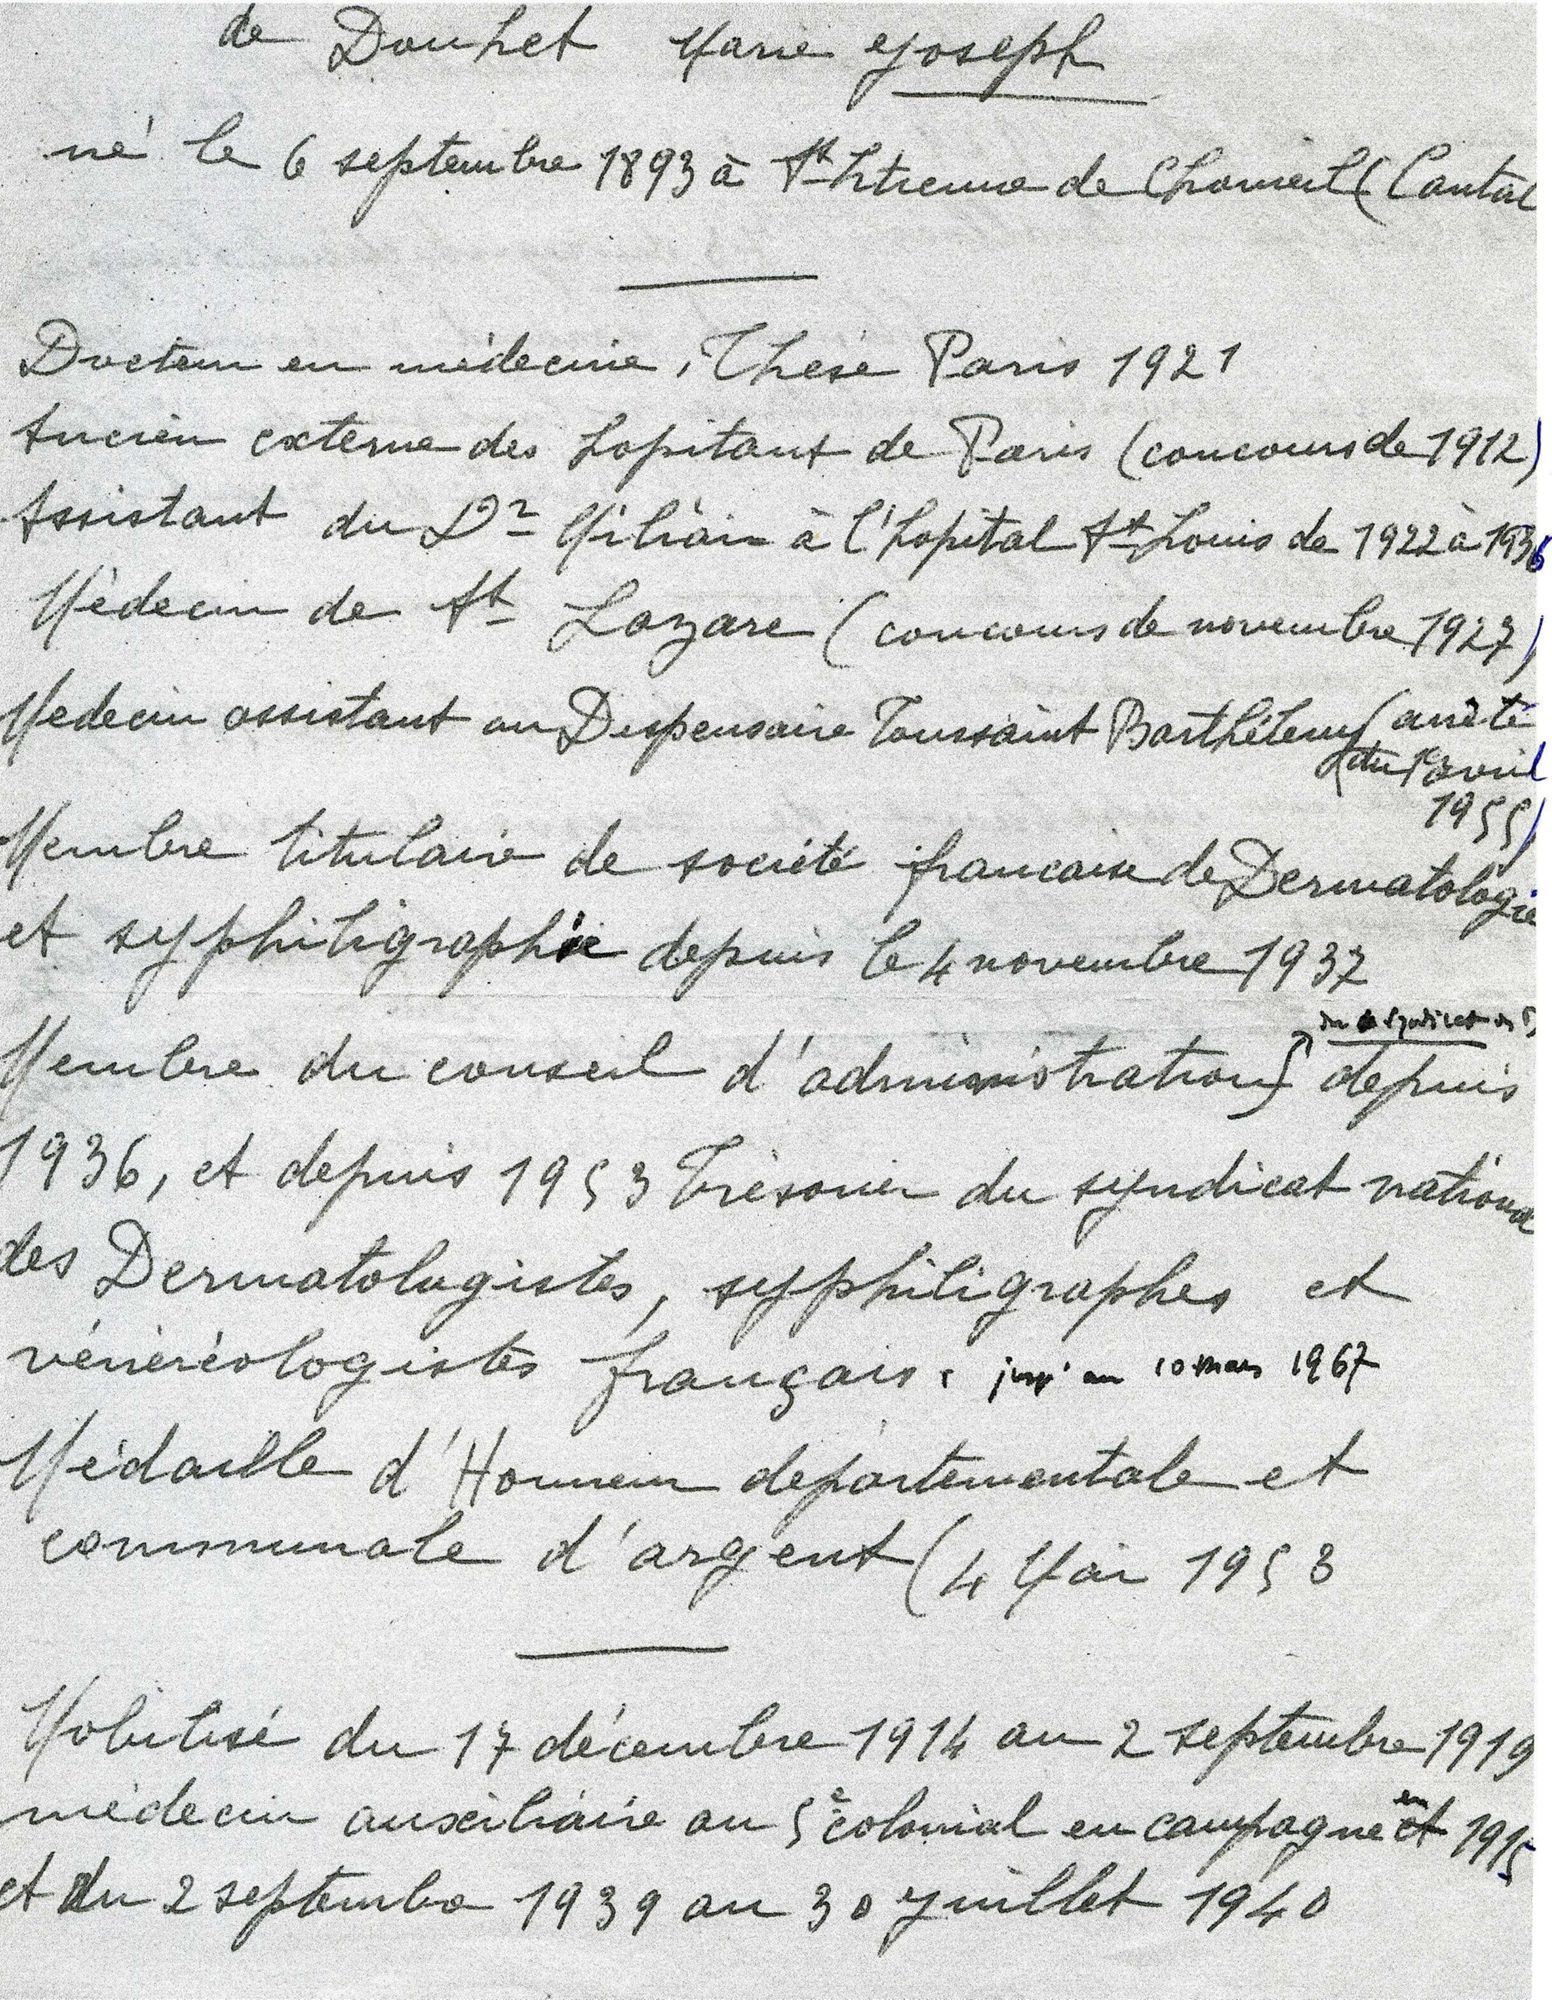 de Douhet Marie Joseph
né le 6 septembre 1893 à St Etienne de Chomeil (Cantal
Docteur en médecine, Thèse Paris 1921
Ancien externe des hopitaux de Paris (concours de 1912)
Assistant du Dr Milian à l'hopital St Louis de 1922 à 1936
Médecin de St Lazare (concours de novembre 1927)
Médecin assistant au Dispensaire Toussaint Barthélemy (arrêté
du 1er avril
1955)
Membre titulaire de société francaise de Dermatologie
et syphiligraphie depuis le 4 novembre 1937
du syndicat
Membre du conseil d'administration depuis
1936, et depuis 1953 Trésorier du syndicat national
des Dermatologistes, syphiligraphes et
vénéréologistes français. jusqu'au 10 mars 1967
Médaille d'Honneur départementale et
communale d'argent (4 Mai 1953
Mobilisé du 17 décembre 1914 au 2 septembre 1919
médecin auxiliaire au 5e colonial en campagne en 1915
et du 2 septembre 1939 au 30 Juillet 1940